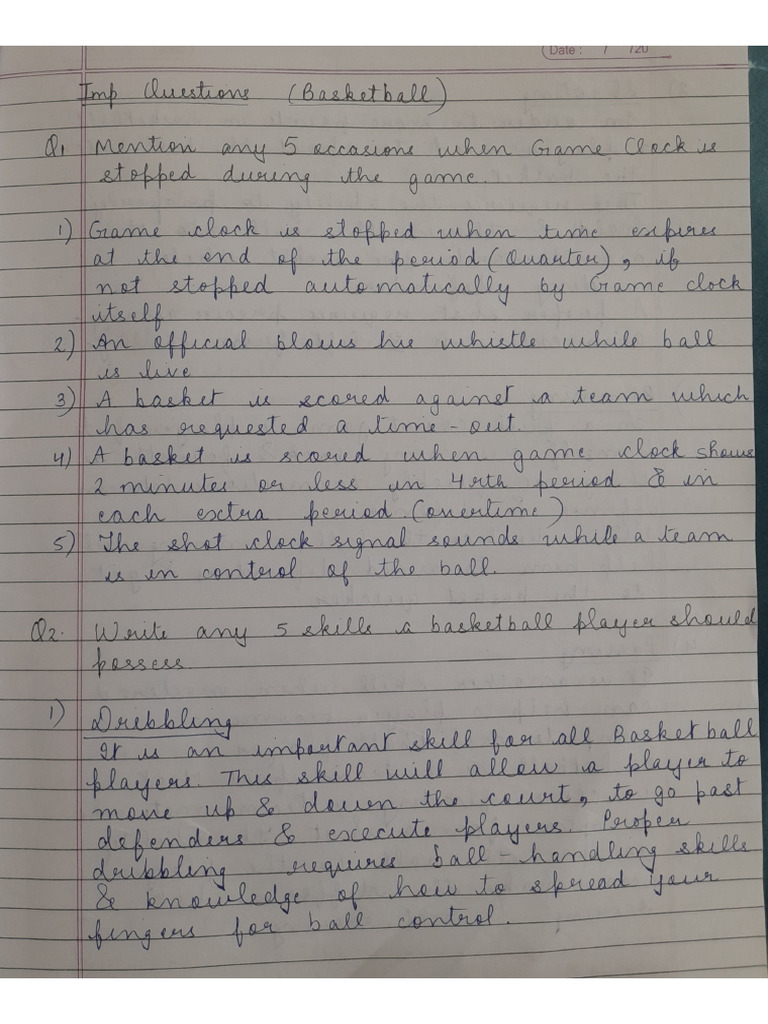 Date : / /20
Imp Questions (Basketball)
Q1 Mention any 5 occasions when Game Clock is
stopped during the game.
1) Game clock is stopped when time expires
at the end of the period (Quarter), if
not stopped automatically by Game clock
itself
2) An official blows his whistle while ball
is live
3) A basket is scored against a team which
has requested a time-out.
4) A basket is scored when game clock shows
2 minutes or less in 4rth period & in
each extra period. (overtime)
5) The shot clock signal sounds while a team
is in control of the ball.
Q2. Write any 5 skills a basketball player should
possess.
1) Dribbling
It is an important skill for all Basketball
players. This skill will allow a player to
move up & down the court, to go past
defenders & execute players. Proper
dribbling requires ball-handling skills
& knowledge of how to spread your
fingers for ball control.